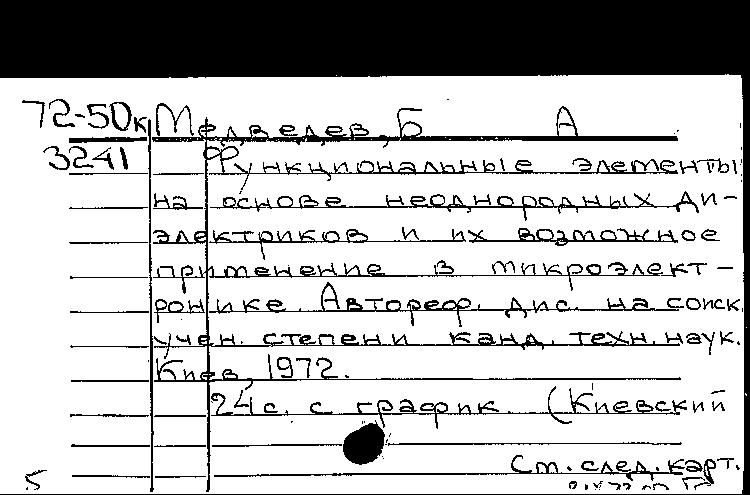 72-50к Медведев, Б А
3241 Функциональные элементы
на основе неоднородных ди-
электриков и их возможное
применение в микроэлект-
ронике. Автореф. дис. на соиск
учен. степени канд. техн. наук.
Киев, 1972.
24 с. с график. (Киевский
См. след. карт.
5